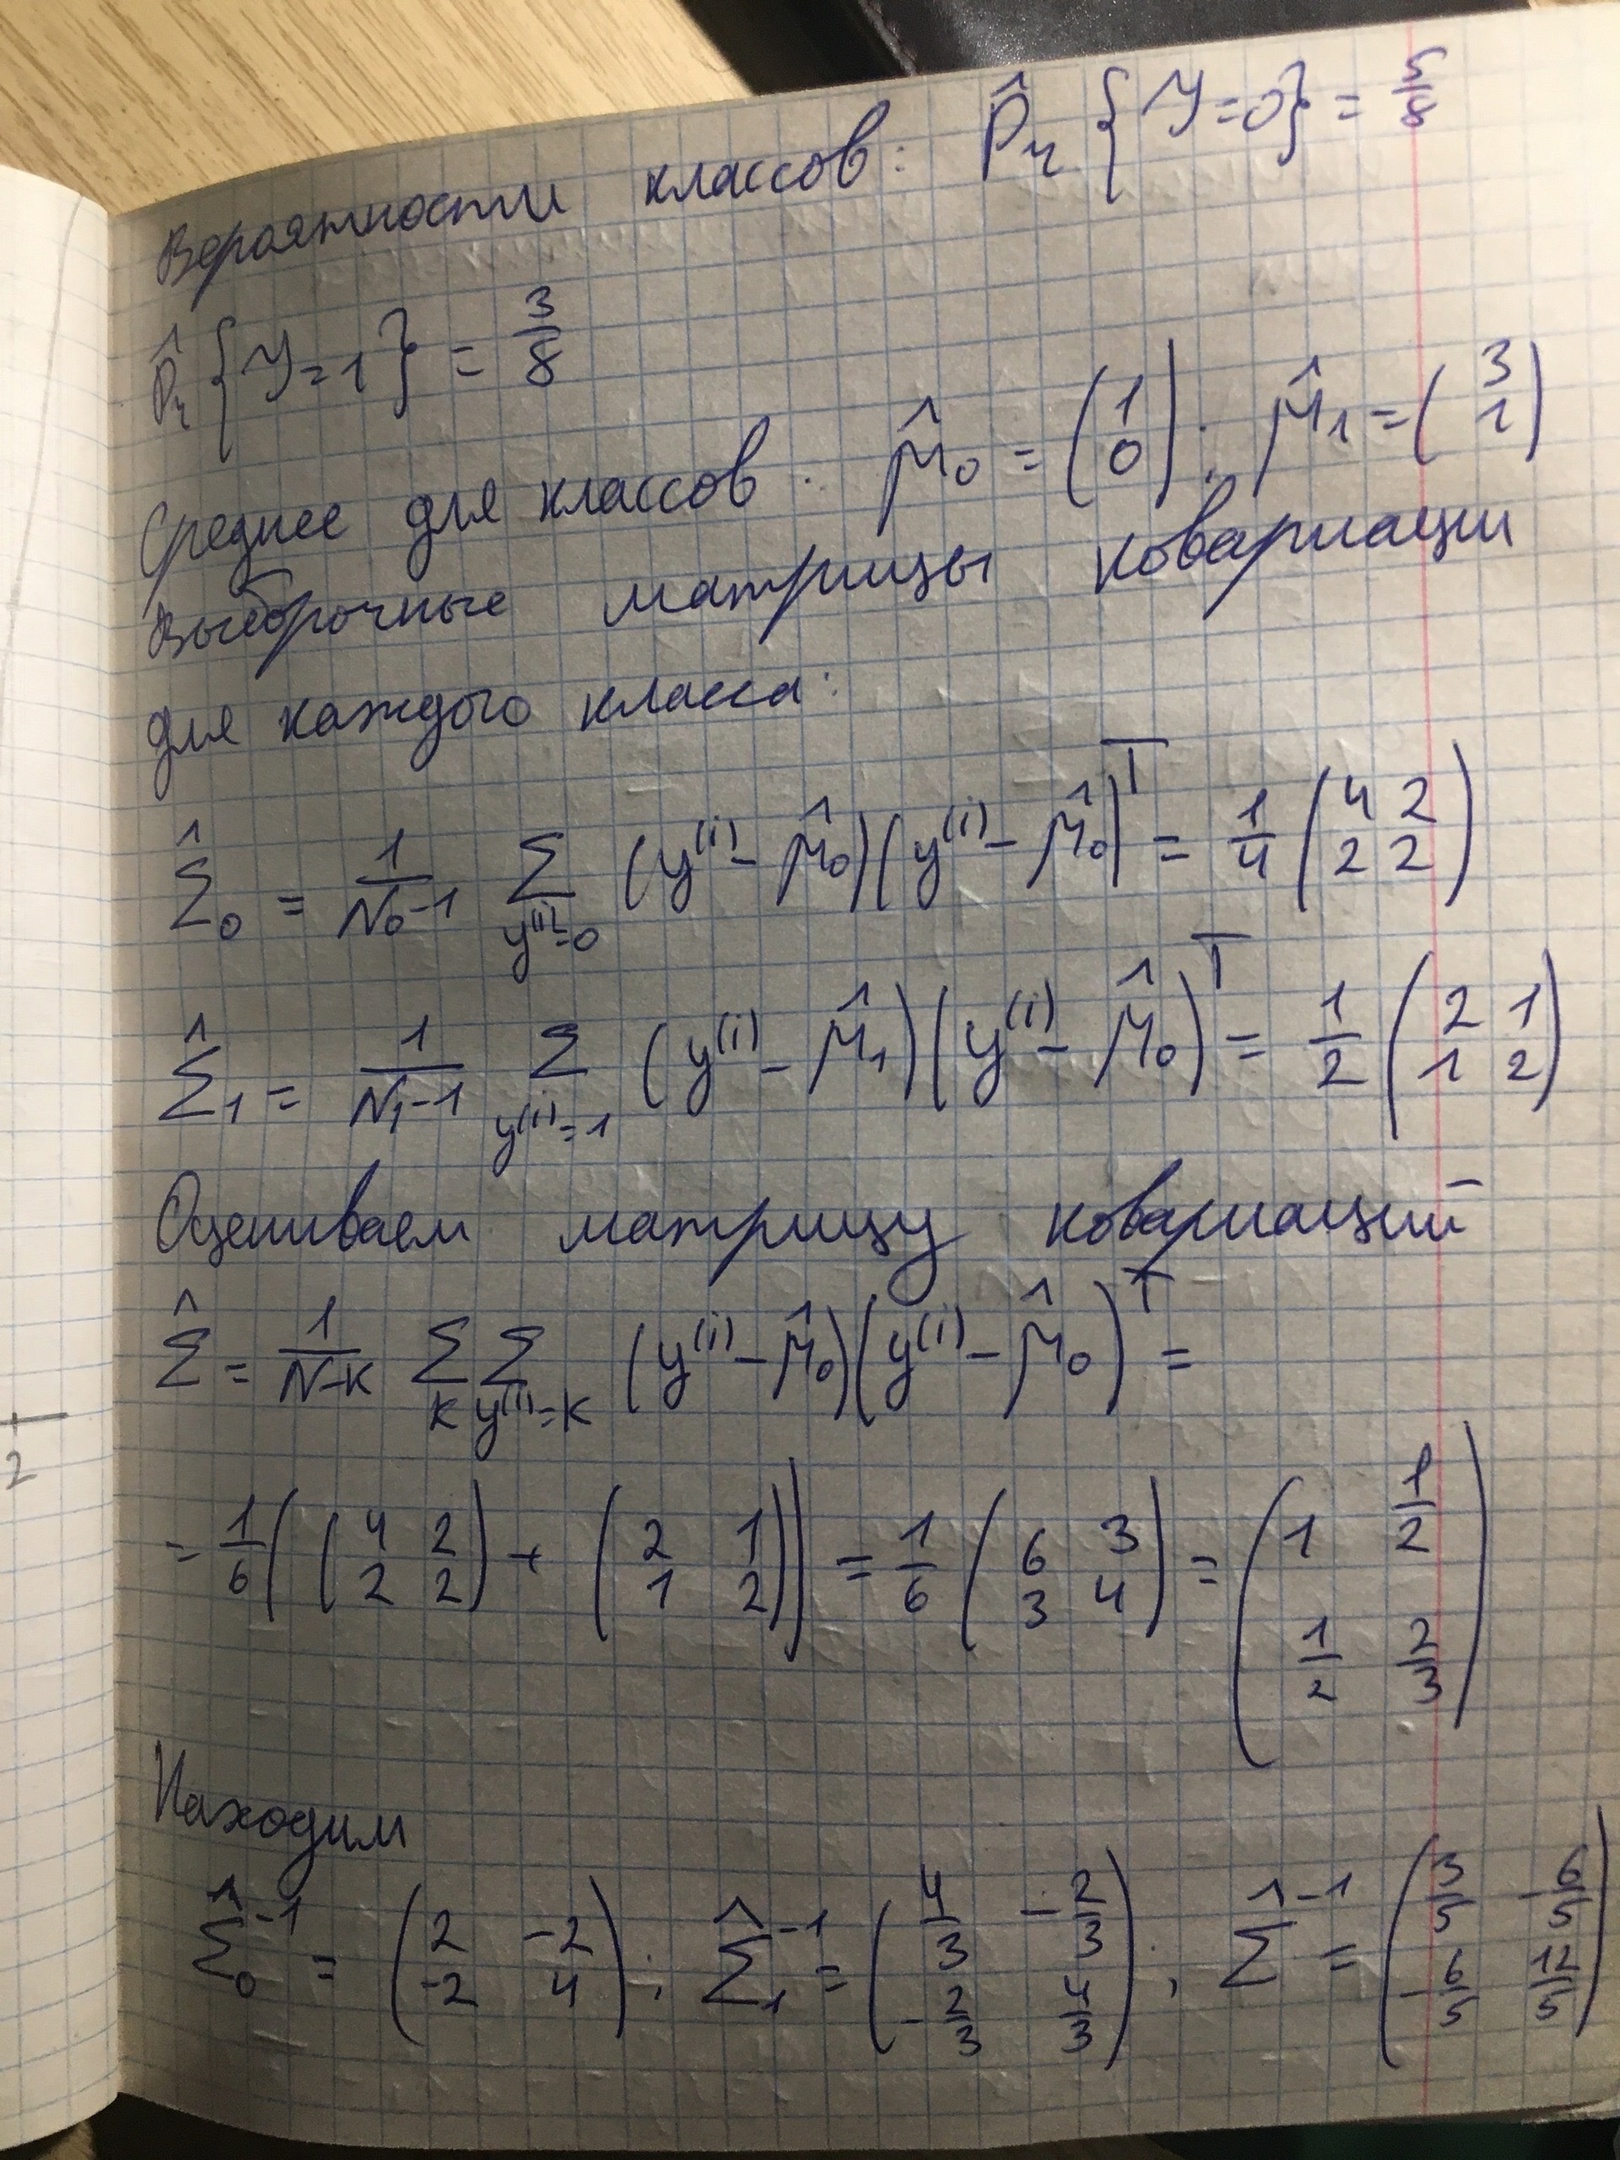 Вероятности классов: P̂r {Y=0} = 5/8
P̂r {Y=1} = 3/8
Среднее для классов. μ̂₀ = (1 0); μ̂₁ = (3 1)
Выборочные матрицы ковариации
для каждого класса:
Σ̂₀ = 1/(N₀-1) Σ_{y⁽ⁱ⁾=0} (y⁽ⁱ⁾ - μ̂₀)(y⁽ⁱ⁾ - μ̂₀)ᵀ = 1/4 (4 2; 2 2)
Σ̂₁ = 1/(N₁-1) Σ_{y⁽ⁱ⁾=1} (y⁽ⁱ⁾ - μ̂₁)(y⁽ⁱ⁾ - μ̂₀)ᵀ = 1/2 (2 1; 1 2)
Оцениваем матрицу ковариаций
Σ̂ = 1/(N-K) Σ_K Σ_{y⁽ⁱ⁾=K} (y⁽ⁱ⁾ - μ̂₀)(y⁽ⁱ⁾ - μ̂₀)ᵀ =
= 1/6 ((4 2; 2 2) + (2 1; 1 2)) = 1/6 (6 3; 3 4) = (1 1/2; 1/2 2/3)
Находим
Σ̂₀⁻¹ = (2 -2; -2 4); Σ̂₁⁻¹ = (4/3 -2/3; -2/3 4/3); Σ̂⁻¹ = (3/5 -6/5; -6/5 12/5)
2